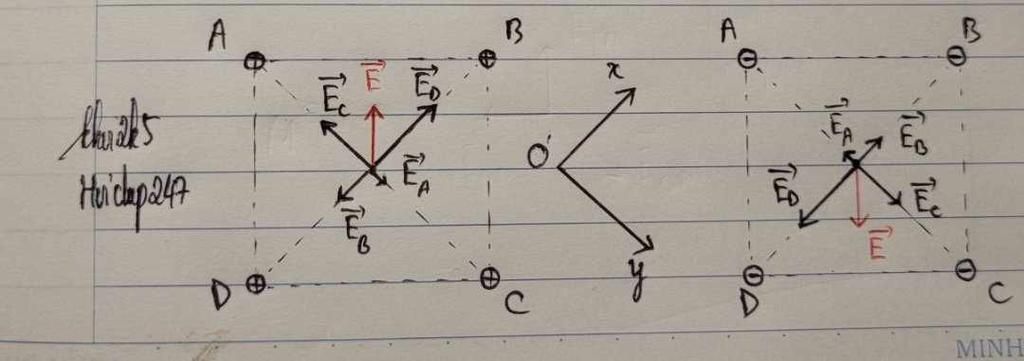 A
B
E⃗
E⃗_C
E⃗_D
E⃗_A
E⃗_B
D
C
Hoidap247
x
O
y
A
B
E⃗_A
E⃗_B
E⃗_D
E⃗_C
E⃗
D
C
MINH